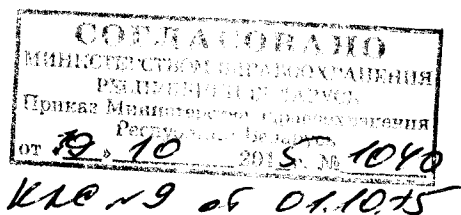 СОГЛАСОВАНО
МИНИСТЕРСТВОМ ЗДРАВООХРАНЕНИЯ
РЕСПУБЛИКИ БЕЛАРУСЬ
Приказ Министерства здравоохранения
Республики Беларусь
от «19» 10 2015 г. № 1040
КЛС №9 от 01.10.15